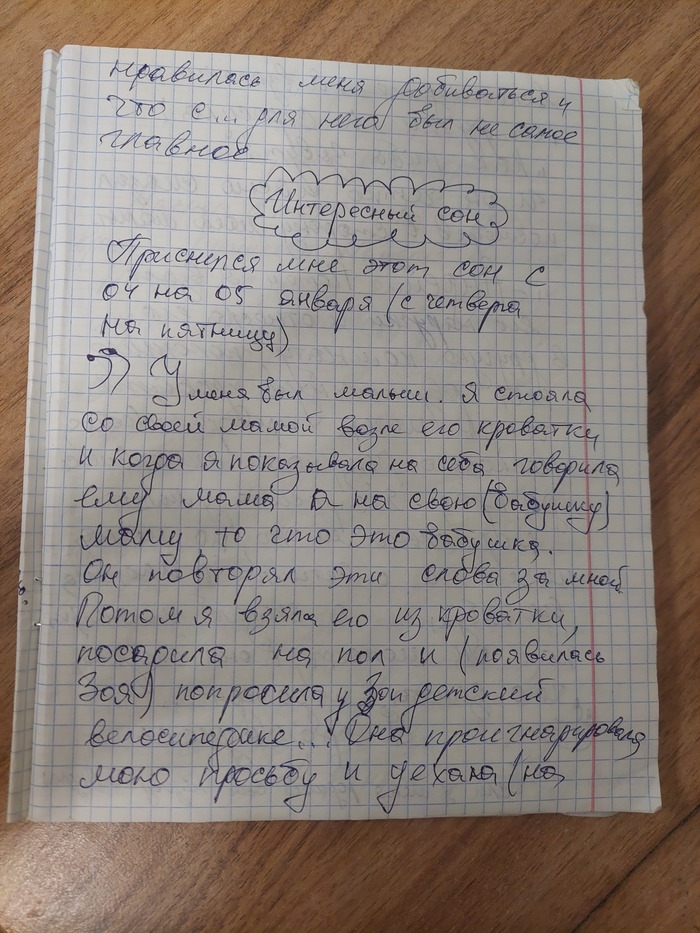 нравилась меня добиваться и
что с... для него был не самое
главное
Интересный сон
Приснился мне этот сон с
04 на 05 января (с четверга
на пятницу)
У меня был малыш. Я стояла
со своей мамой возле его кроватки
и когда я показывала на себя говорила
ему мама а на свою (бабушку)
маму, то что это бабушка.
Он повторял эти слова за мной
Потом я взяла его из кроватки,
посадила на пол и (появилась
Зоя) попросила у Зои детский
велосипедике... Она проигнарировала
мою просьбу и уехала (на